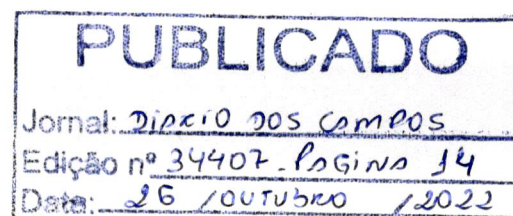 PUBLICADO
Jornal: DIÁRIO DOS CAMPOS
Edição nº 34407 - PÁGINA 14
Data: 26 / OUTUBRO / 2022